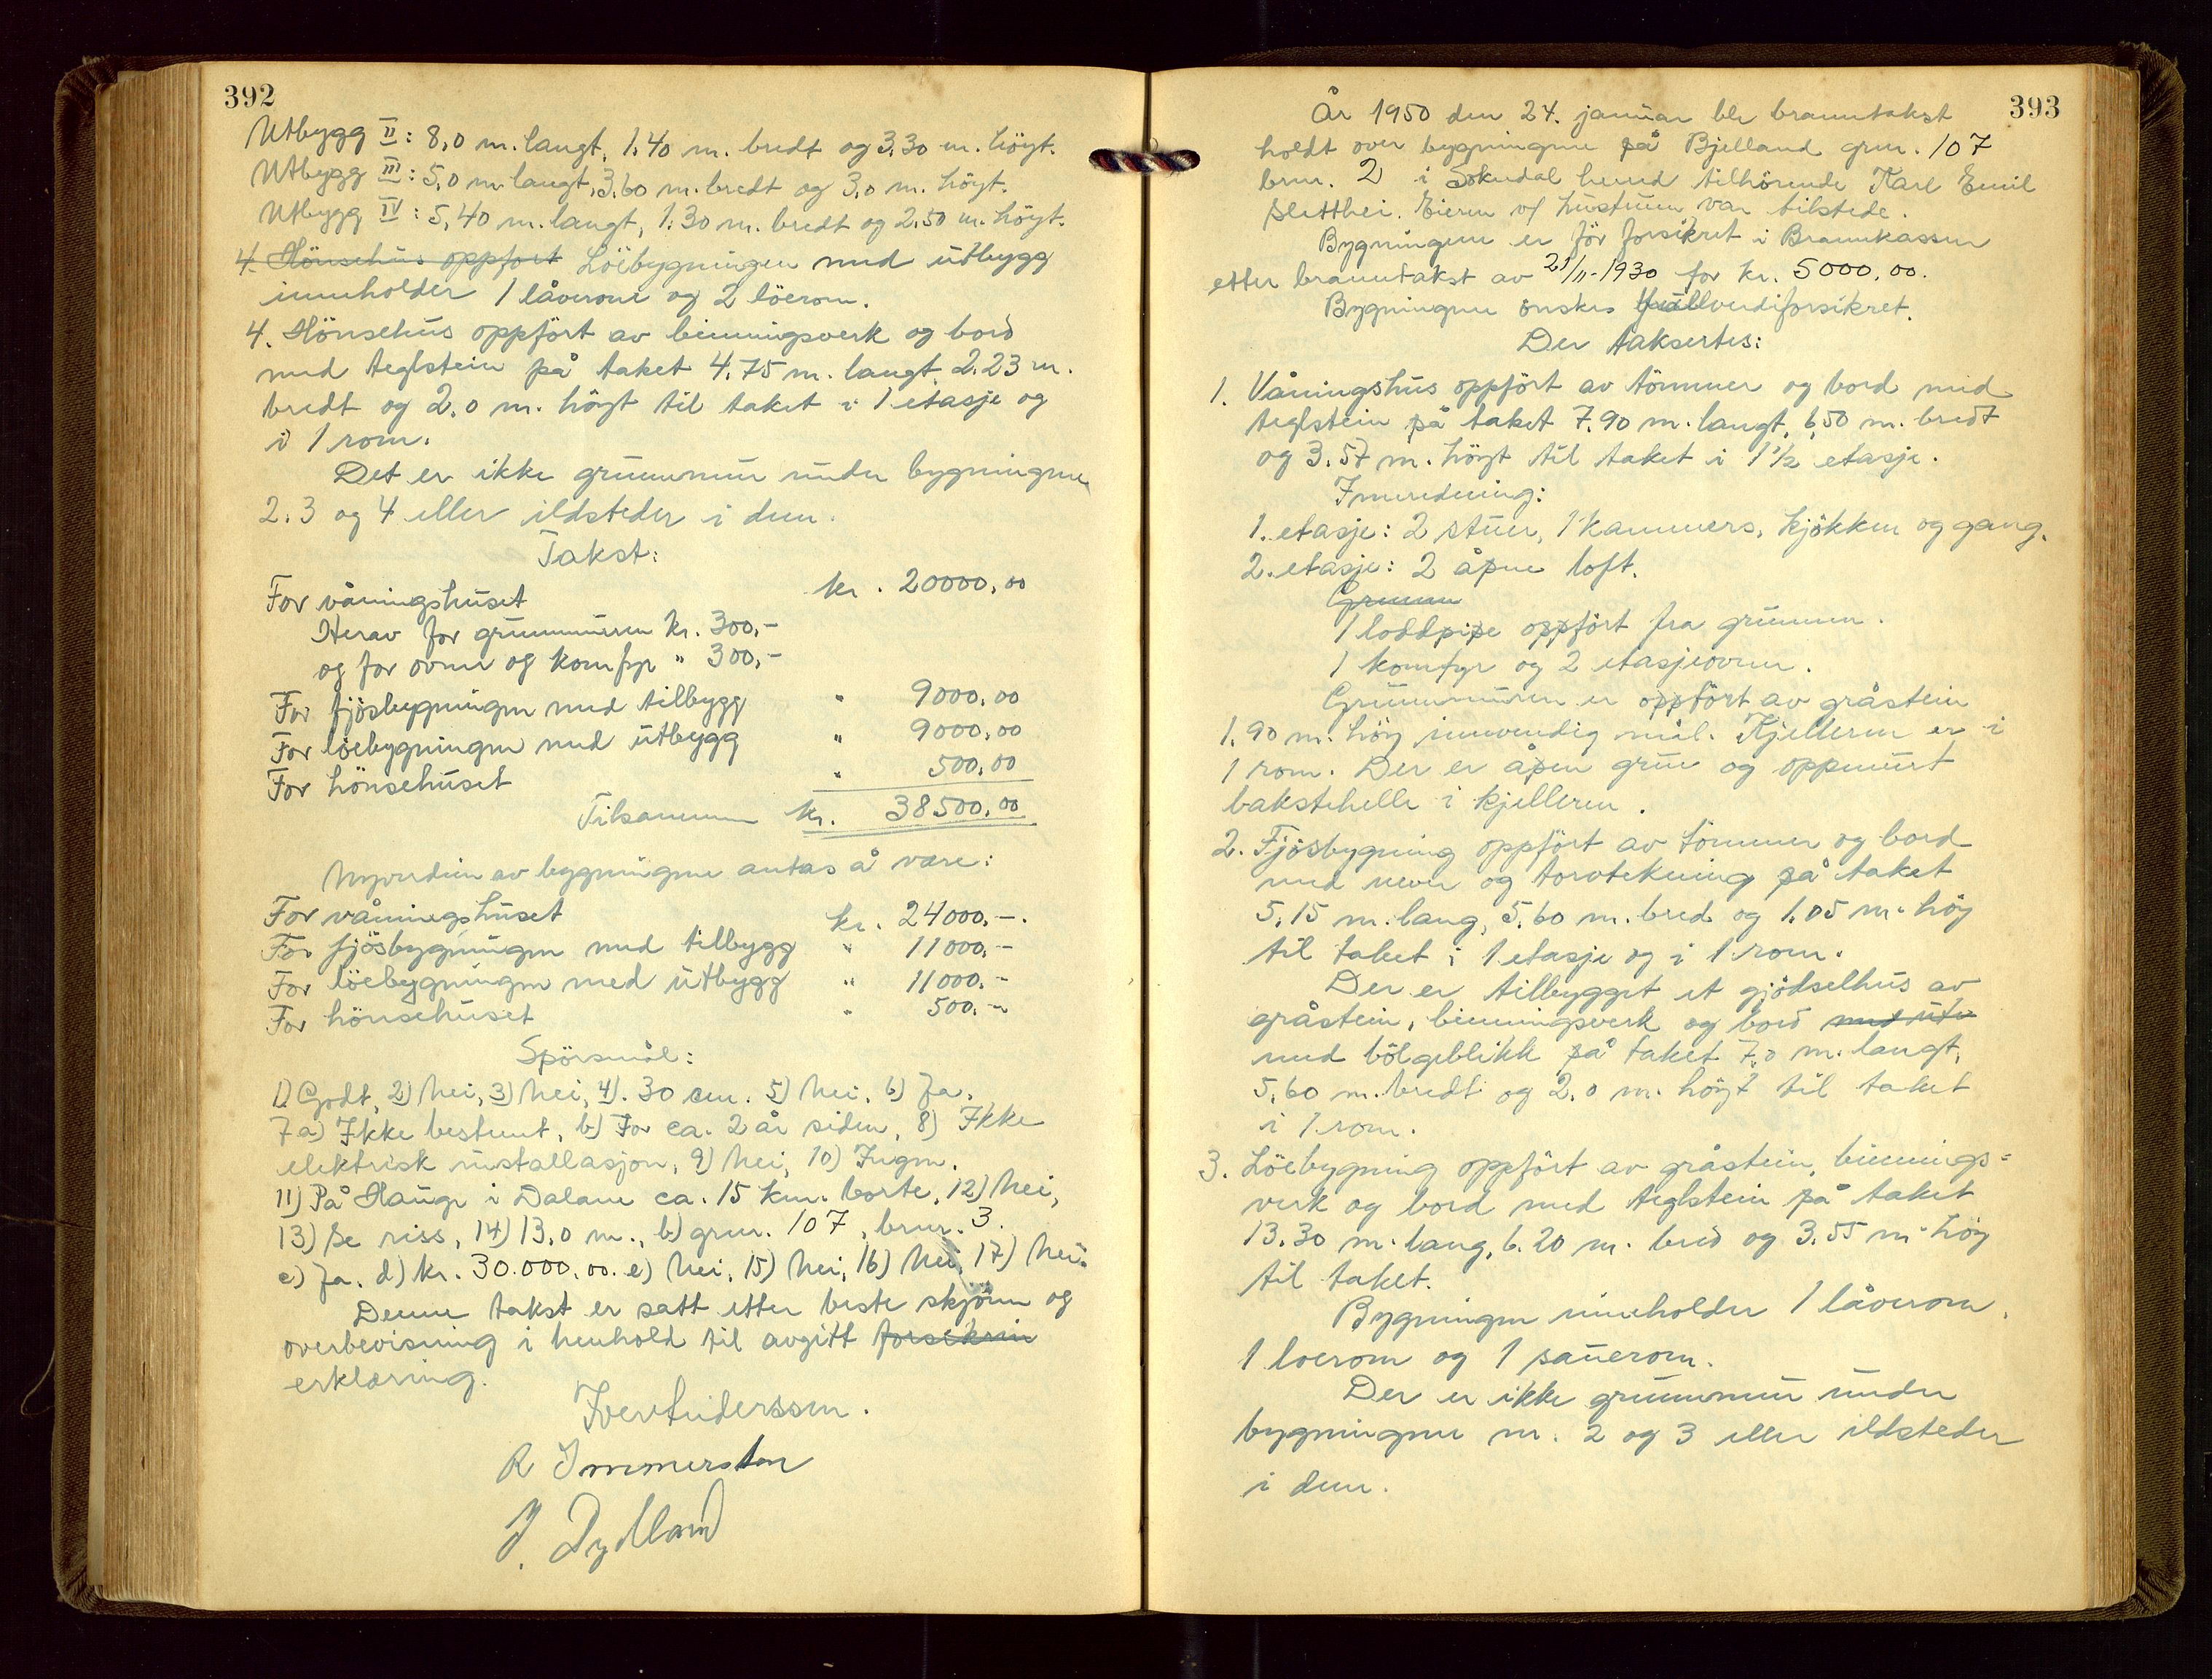 392
Utbygg II: 8,0 m. langt, 1,40 m. bredt og 3,30 m. höyt.
Utbygg III: 5,0 m. langt, 3,60 m. bredt og 3,0 m. höyt.
Utbygg IV: 5,40 m. langt, 1,30 m. bredt og 2,50 m. höyt.
4. Hönsehus oppfört Löebygningen med utbygg
inneholder 1 låverom og 2 löerom.
4. Hönsehus oppfört av binningsverk og bord
med teglstein på taket 4,75 m. langt, 2,23 m.
bredt og 2,0 m. höyt til taket i 1 etasje og
i 1 rom.
Det er ikke grunnmur under bygningene
2. 3 og 4 eller ildsteder i dem.
Takst:
For våningshuset kr. 20000,00
Herav for grunnmuren kr. 300,-
og for ovner og komfyr " 300,-
For fjösbygningen med tilbygg " 9000,00
For löebygningen med utbygg " 9000,00
For hönsehuset " 500,00
Tilsammen kr. 38500,00
Nyverdien av bygningene antas å være:
For våningshuset kr. 24000,-.
For fjösbygningen med tilbygg " 11000,-
For löebygningen med utbygg " 11000,-
For hönsehuset " 500,-
Spörsmål:
1) Godt, 2) Nei, 3) Nei, 4). 30 cm. 5) Nei, 6) Ja.
7 a) Ikke bestemt, b) For ca. 2 år siden, 8) Ikke
elektrisk installasjon, 9) Nei, 10) Ingen.
11) På Hauge i Dalane ca. 15 km. borte, 12) Nei,
13) Se riss, 14) 13,0 m., b) grnr. 107, brnr. 3.
c) Ja. d) kr. 30.000,00. e) Nei, 15) Nei, 16) Nei, 17) Nei.
Denne takst er satt etter beste skjönn og
overbevisning i henhold til avgitt forsikrin
erklæring.
Iver Anderssen.
R Immerstein
J. Dydland
393
År 1950 den 24. januar ble branntakst
holdt over bygningene på Bjelland grnr. 107
brnr. 2 i Sokndal herred tilhörende Karl Emil
Sletthei. Eieren v/ hustruen var tilstede.
Bygningene er för forsikret i Brannkassen
etter branntakst av 21/11-1930 for kr. 5000,00.
Bygningene önskes fullverdiforsikret.
Der taksertes:
1. Våningshus oppfört av tömmer og bord med
teglstein på taket 7,90 m. langt, 6,50 m. bredt
og 3,57 m. höyt til taket i 1 1/2 etasje.
Innredning:
1. etasje: 2 stuer, 1 kammers, kjökken og gang.
2. etasje: 2 åpne loft.
Grunn
1 loddpipe oppfört fra grunnen.
1 komfyr og 2 etasjeovner.
Grunnmuren er oppfört av gråstein
1,90 m. höy innvendig mål. Kjelleren er i
1 rom. Der er åpen grue og oppmurt
bakstehelle i kjelleren.
2. Fjösbygning oppfört av tömmer og bord
med never og torvtekning på taket
5,15 m. lang, 5,60 m. bred og 1,05 m. höy
til taket i 1 etasje og i 1 rom.
Der er tilbygget et gjödselhus av
gråstein, binningsverk og bord med utv
med bölgeblikk på taket 7,0 m. langt,
5,60 m. bredt og 2,0 m. höyt til taket
i 1 rom.
3. Löebygning oppfört av gråstein, binnings=
verk og bord med teglstein på taket
13,30 m. lang, 6.20 m. bred og 3,55 m. höy
til taket.
Bygningen inneholder 1 låverom,
1 loerom og 1 sauerom.
Der er ikke grunnmur under
bygningene nr. 2 og 3 eller ildsteder
i dem.